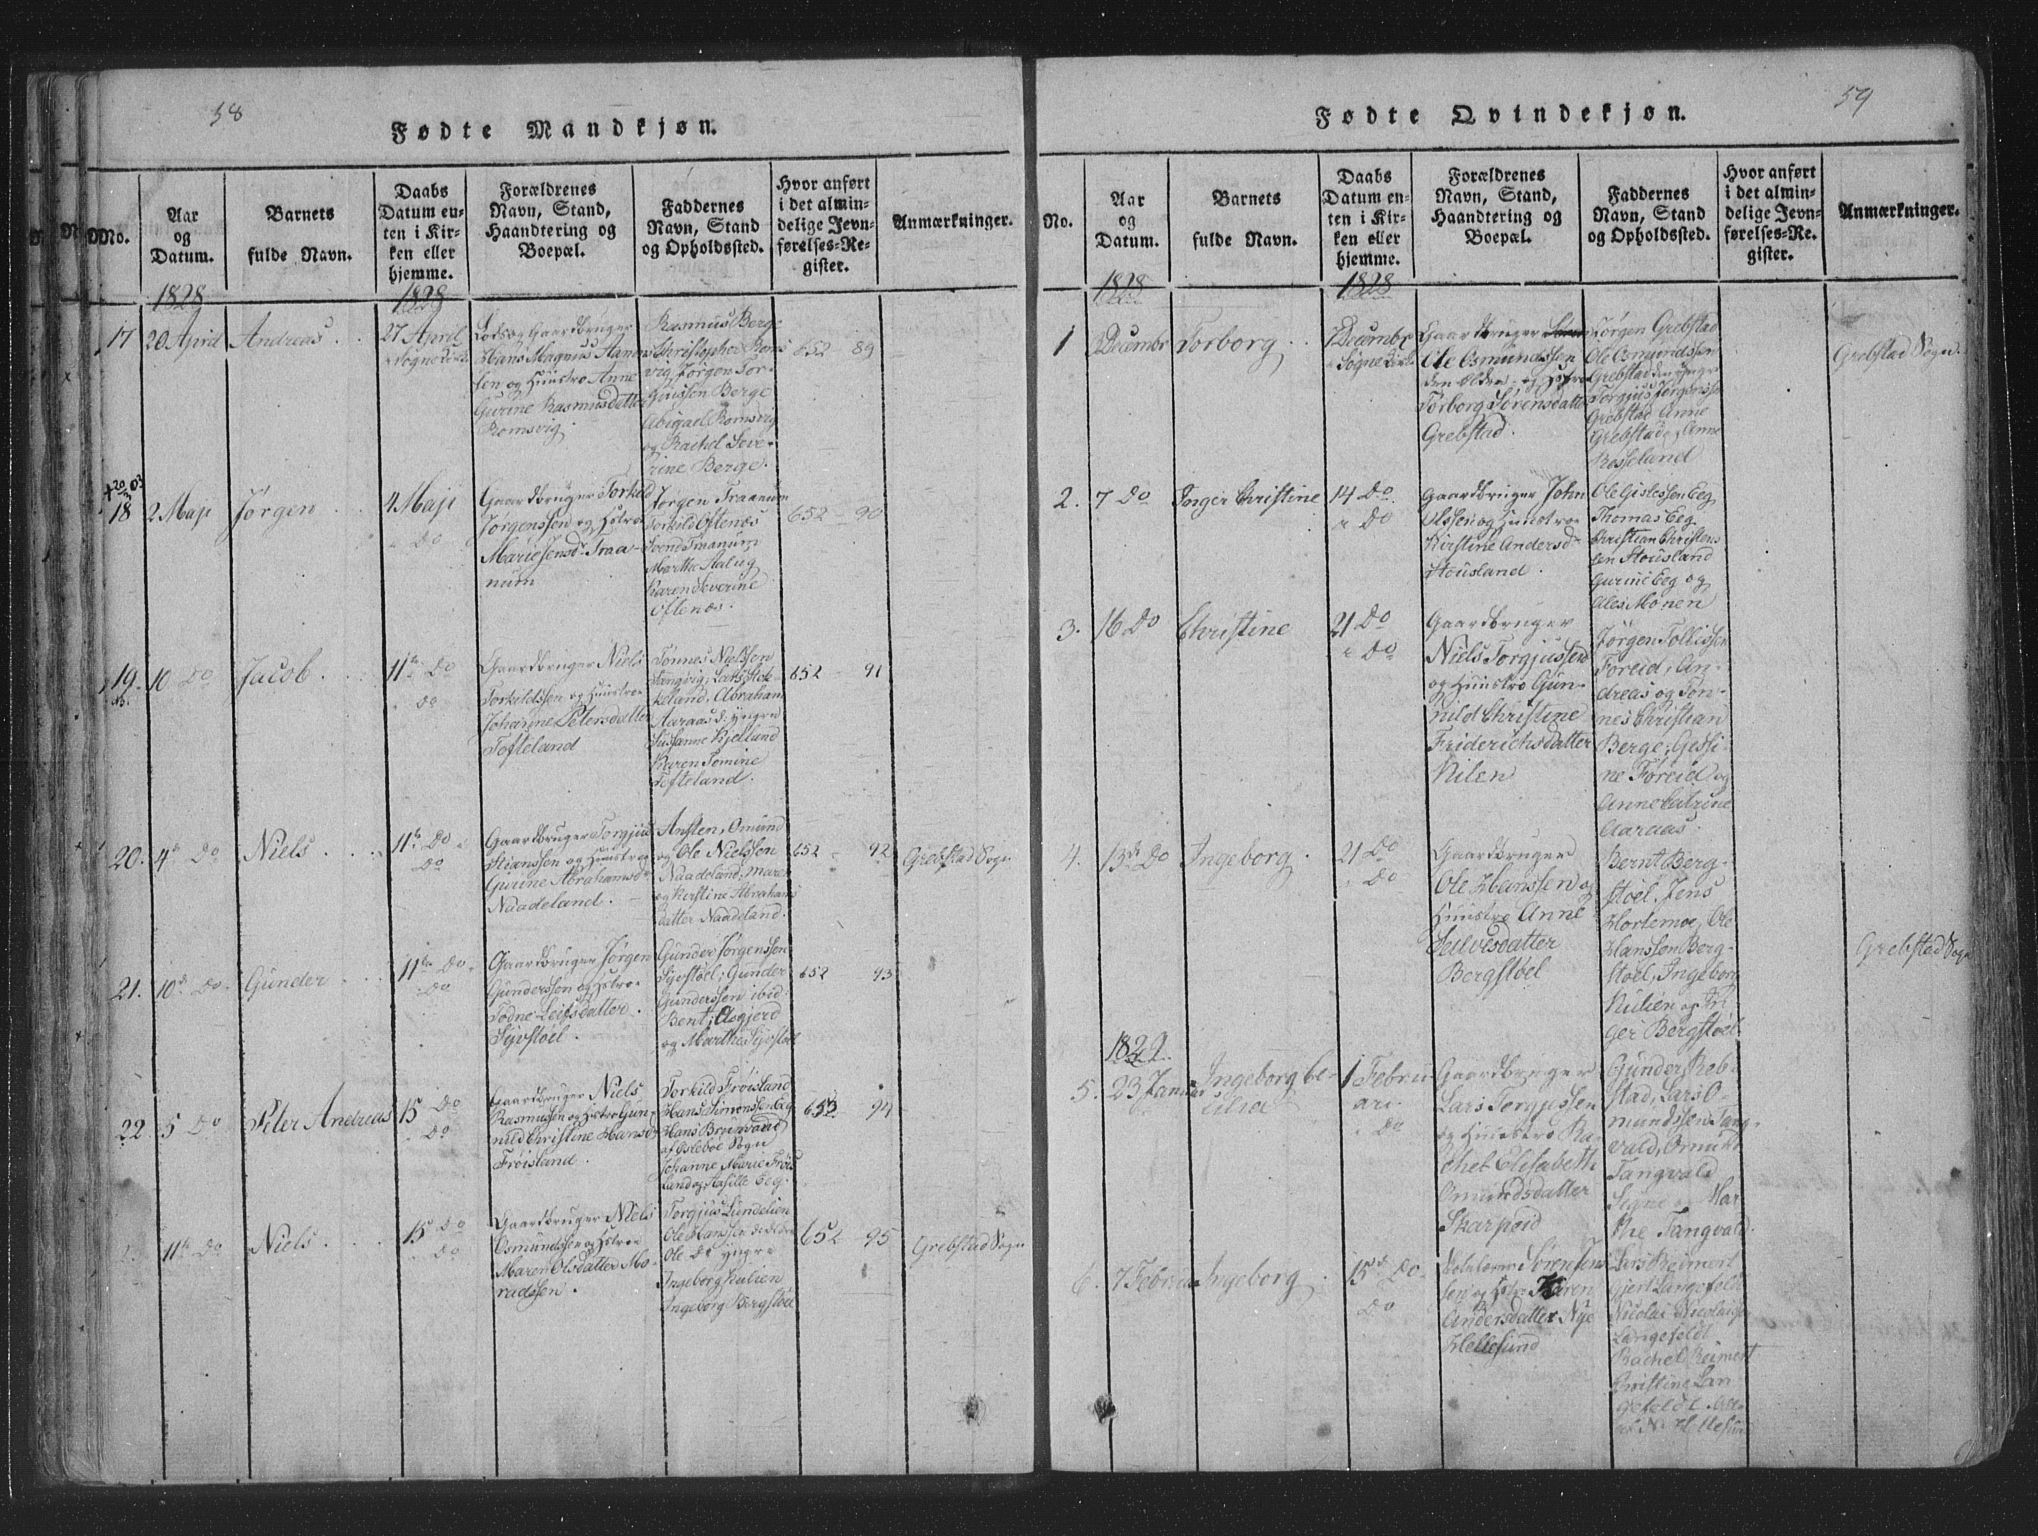 58
Fødte Mandkjøn.
No.
Aar
og
Datum.
Barnets
fulde Navn.
Daabs
Datum en-
ten i Kir-
ken eller
hjemme.
Forældrenes
Navn, Stand,
Haandtering og
Boepæl.
Faddernes
Navn, Stand
og Opholdssted.
Hvor anført
i det almin-
delige Jevn-
førelses-Re-
gister.
Anmærkninger.
1828
1828
17
20 April
Andreas
27 April
Lods og Gaardbruger
Hans Magnus
sen og Huustroe Anne
Gurine Rasmusdatter
Romsvig.
Rasmus Berge
Christopher Roms
vig, Jørgen Tor-
Berge
Abigael Romsvig
og Rachel Seve-
rine Berge.
652 - 89
18
2 Maji
Jørgen
4 Maji
Do
Gaardbruger Torkild
Jørgenssen og Hstroe
Marie Jensdr Traa-
num
Jørgen Traanum
Torkild Oftenæs
Svend Traanum
Marthe
Karen Severine
Oftenæs.
652 - 90
19.
10 Do
Jacob.
11te Do
Do
Gaardbruger Niels
Torkildssen og Huustroe
Johanne Petersdatter
Tofteland
Tønnes Nielssen
Tangvig, Lars
keland, Abraham
Aaraas d: yngre
Susanne Kjellund
Karen Tomine
Tofteland.
652 - 91
20.
4de Do
Niels
11te Do
Do
Gaardbruger Torgjus
Stianssen og Huustroe
Gurine Abrahamsdr
Naadeland.
Ansten, Omund
og Ole Nielssen
Naadeland, Maren
og Kerstine Abrahams
datter Naadeland.
652 - 92
Grebstad Sogn
21.
10de Do
Gunder
11te Do
Do
Gaardbruger Jørgen
Gunderssen og Hstroe
Todne Leifsdatter
Syvstøel.
Gunder Jørgenssen
Syvstøel, Gunder
Gunderssen ibid.
Bent, Asgjerd
og Marthe Syvstøel
652 93
22.
5 Do
Peter Andreas
15 Do
Do
Gaardbruger Niels
Rasmussen og Hstroe Gun-
nild Christine Hansdr
Frøisland.
Torkild Frøisland
Hans Simonssen Eeg
Hans Brunvand
af Øslebøe Sogn
Johanne Marie Frøis
land og Eeg.
653 - 94
11te Do
Niels
15de Do
Do
Gaardbruger Niels
Osmundssen og Hstroe
Maren Olsdatter Mo-
radssen.
Torgjus Lundelien
Ole Hanssen de Eldre
Ole Do yngre
Ingeborg Kulien
Ingeborg Bergstøel
652 95
Grebstad Sogn
59
Fødte Qvindekjøn.
No.
Aar
og
Datum.
Barnets
fulde Navn.
Daabs
Datum en-
ten i Kir-
ken eller
hjemme.
Forældrenes
Navn, Stand,
Haandtering og
Boepæl.
Faddernes
Navn, Stand
og Opholdssted.
Hvor anført
i det almin-
delige Jevn-
førelses-Re-
gister.
Anmærkninger.
1828
1828
1
3 Decembr
Torborg
7 Decembr
Sogne Kirke
Gaardbruger
Ole Osmundssen
den Eldre og Hstroe
Torborg Sørensdatter
Grebstad.
Jørgen Grebstad
Ole Osmundssen
Grebstad den yngre
Torgjus Jørgenssen
Grebstad, Anne
Grebstad og Anne
Rosseland
Grebstad Sogn.
2.
7 Do
Inger Christine
14 Do
Do
Gaardbruger John
Olssen og Huustroe
Kirstine Andersdr
Stousland.
Ole Gislessen Eeg
Thomas Eeg
Christian Christens
sen Stousland
Gurine Eeg og
Ales Monen
3.
16 Do
Christine
21 Do
Do
Gaardbruger
Niels Torgjussen
og Huustro Gun-
nild Christine
Friderichsdatter
Kilen
Jørgen Tollissen
Foreid, An-
dreas og Tøn-
nes Christian
Berge, Gessi-
ne Føreid og
Anne Catrine
Aaraas.
4.
13de Do
Ingeborg.
21 Do
Do
Gaardbruger
Ole Hanssen og
Huustro Anne
Seilvesdatter
Bergstøel
Bernt Berg-
støel, Jens
Hortemoe, Ole
Hanssen Berg-
støel, Ingeborg
Kulien og In-
ger Bergstøel
Grebstad Sogn
1829.
5.
23 Januar
Ingeborg Ce-
cilia
1 Febru
ari.
Do
Gaardbruger
Lars Torgjussen
og Huustro Ra-
chel Elisabeth
Omundsdatter
Skarpeid
Gunder Reb-
stad, Lars O-
mundssen Tang-
vald, Omund
Tangvald
Signe og Mar
the Tangvald
6.
7 Februar
Ingeborg
15de Do
Do
Sørenssen
og Karen
Andersdatter Nye
Hellesund
Lars Reimert
Gjert Langefeldt
Nicolai
Langefeldt
Rachel Reimert
Christine Lan
gefeldt
N. Hellesund